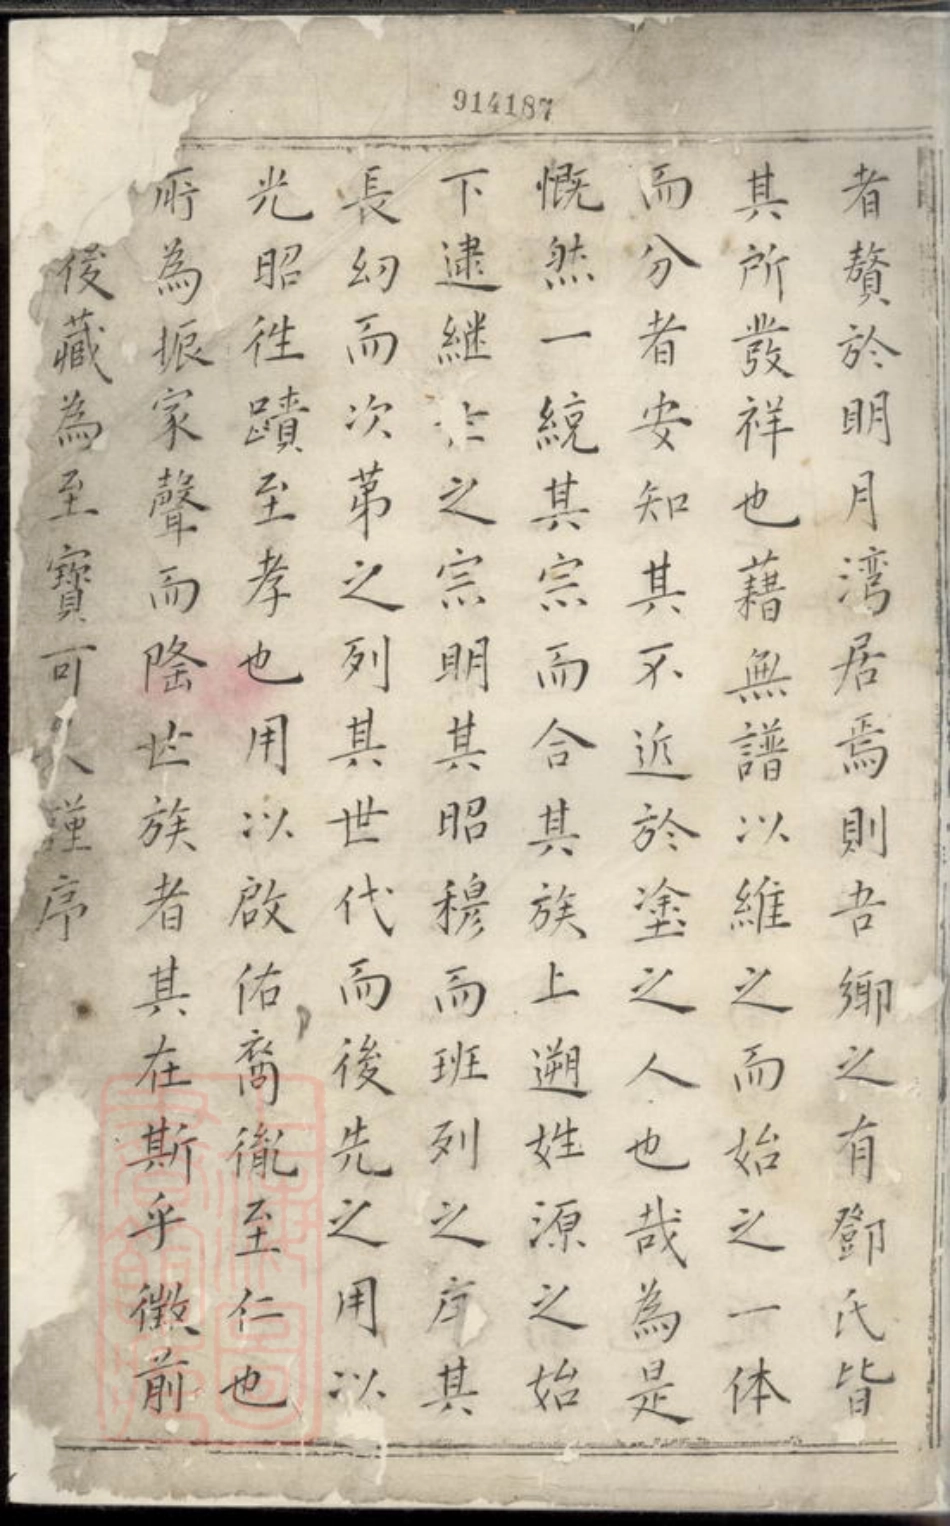 914187
者贅於明月湾居焉則吾鄉之有鄧氏皆
其所發祥也藉無譜以維之而始之一体
而分者安知其不近於塗之人也哉為是
慨然一統其宗而合其族上遡姓源之始
下逮継之宗明其昭穆而班列之序其
長幼而次第之列其世代而後先之用以
光昭徃蹟至孝也用以啟佑裔胤至仁也
所為振家聲而隆世族者其在斯乎徵前
後藏為至寶可久謹序